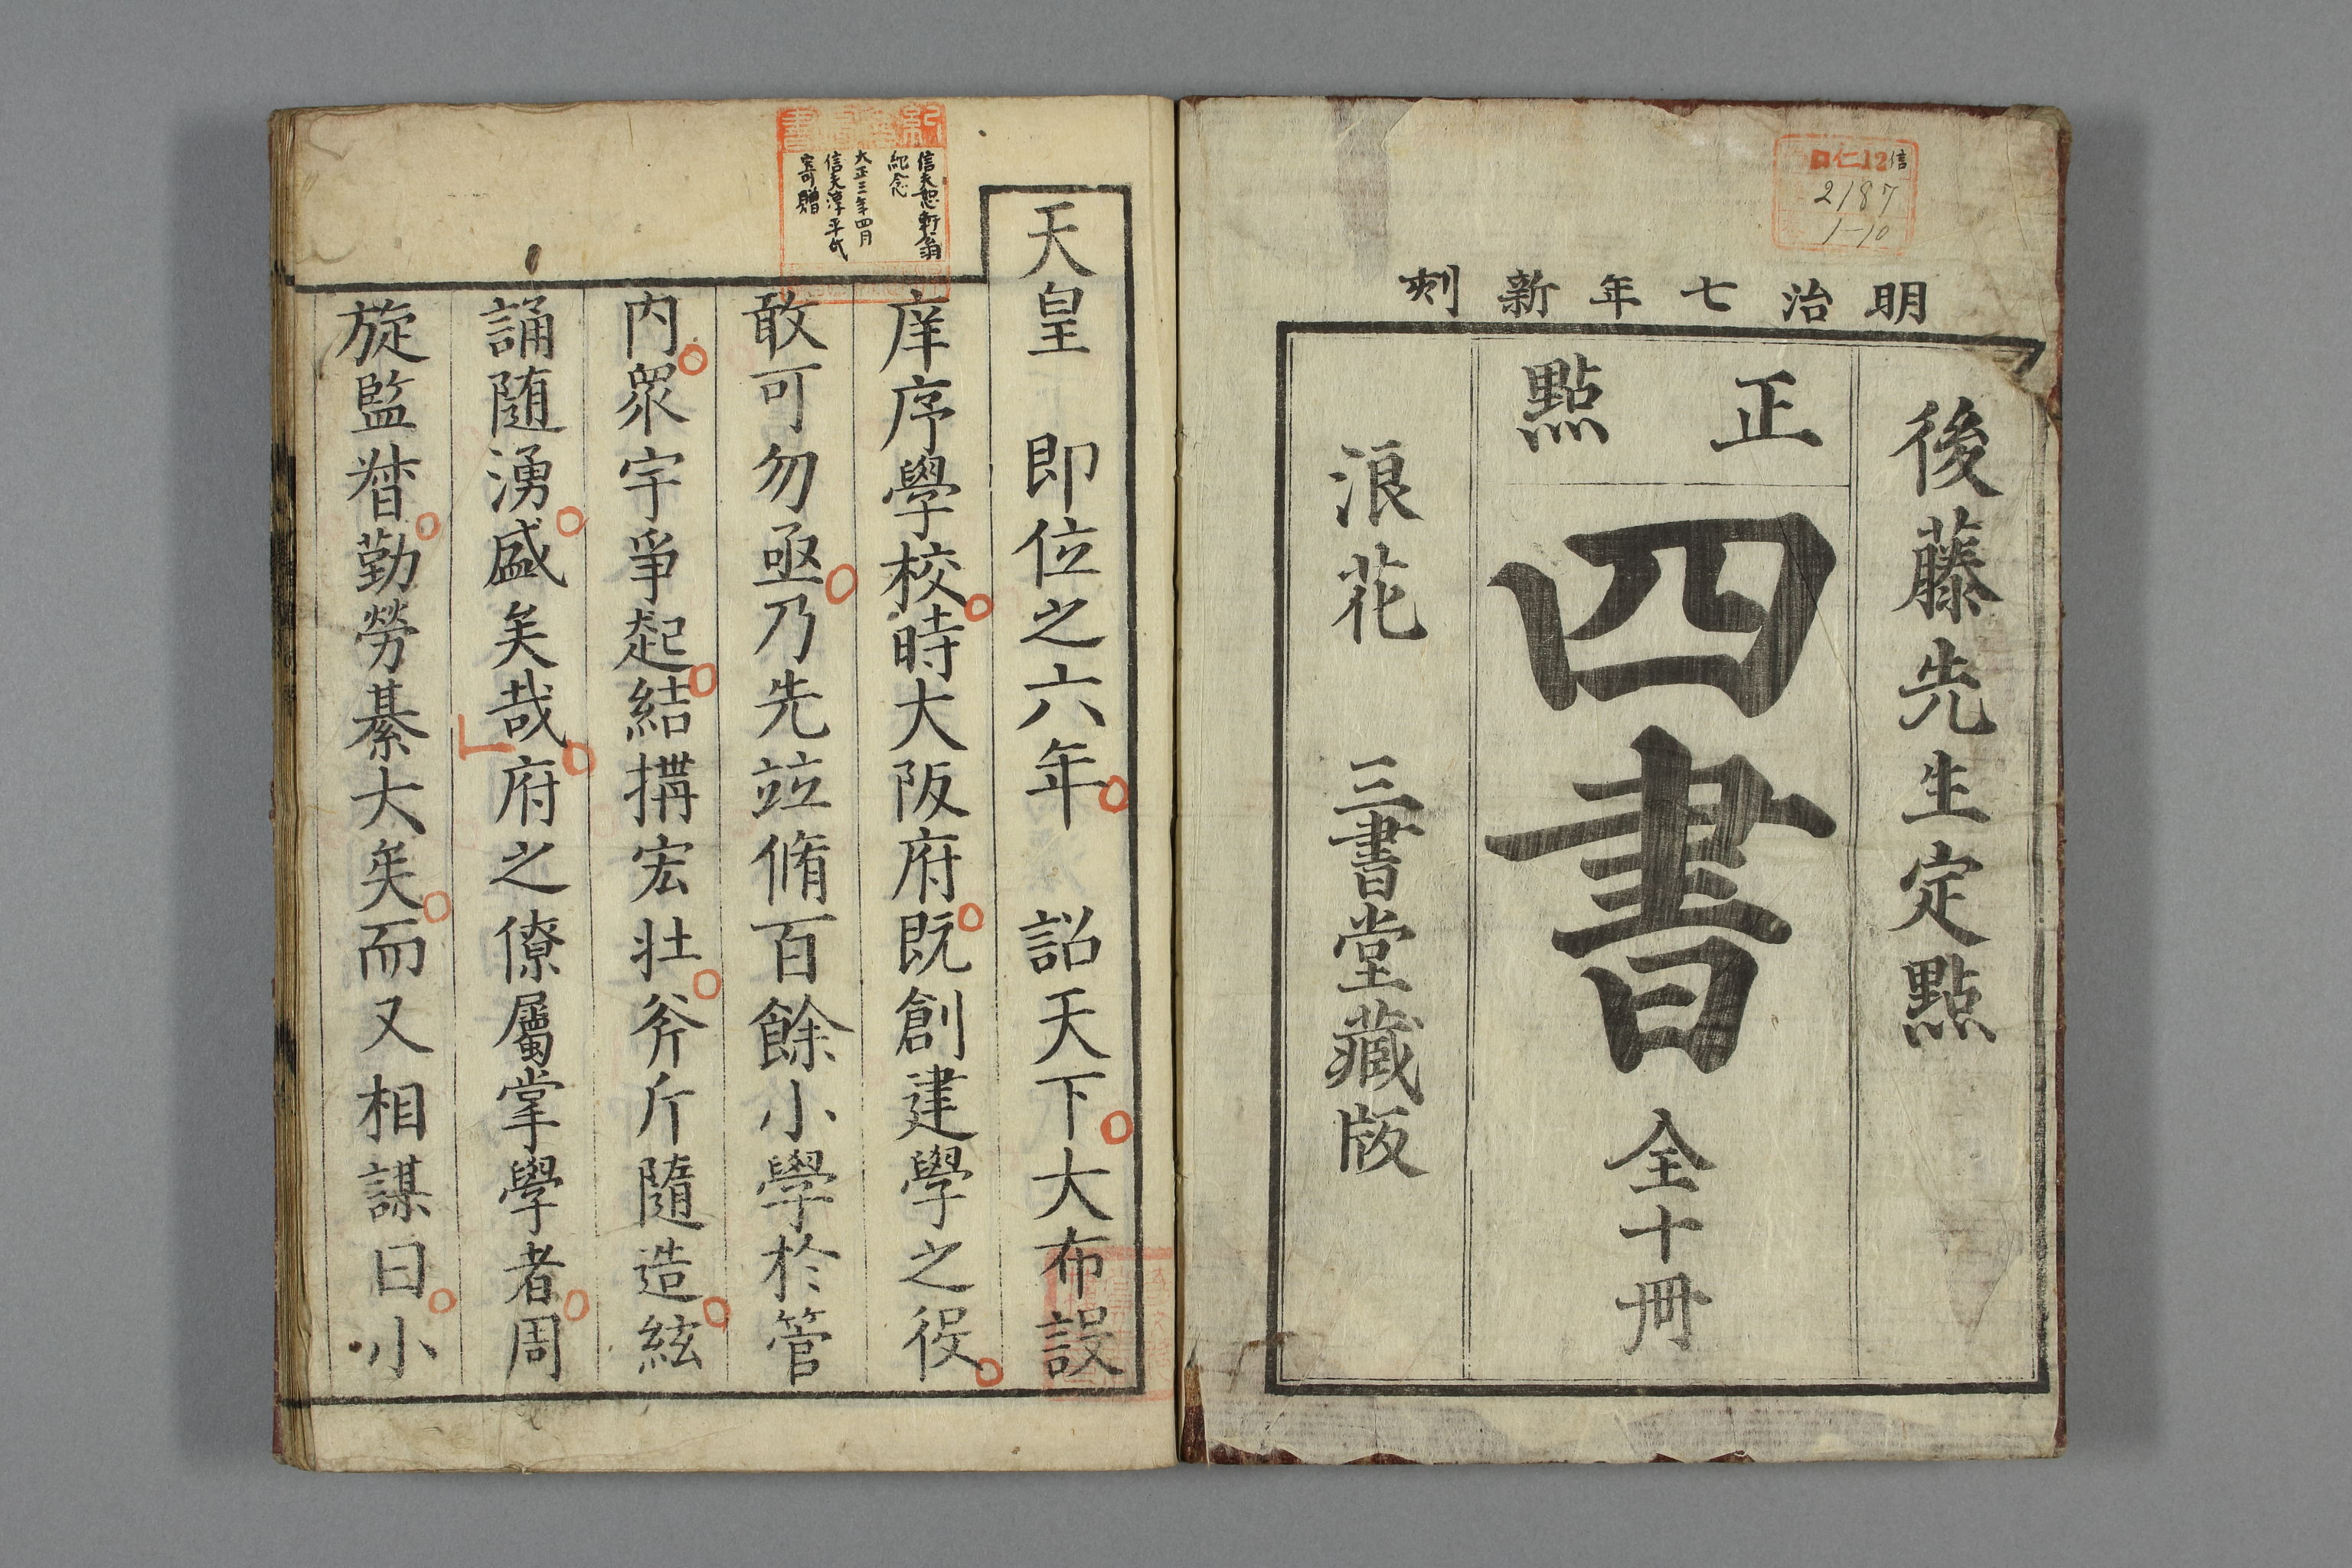 明治七年新刻
後藤先生定點
正點
四書 全十冊
浪花 三書堂藏版
ロ仁12信
2187
1-10
天皇 即位之六年 詔天下大布設
庠序學校時大阪府既創建學之役
敢可勿亟乃先竝脩百餘小學於管
内衆宇爭起結搆宏壮斧斤隨造絃
誦随湧盛矣哉府之僚屬掌學者周
旋監督勤勞綦大矣而又相謀曰小
信夫恕軒翁
紀念
大正三年四月
信夫淳平氏
寄贈